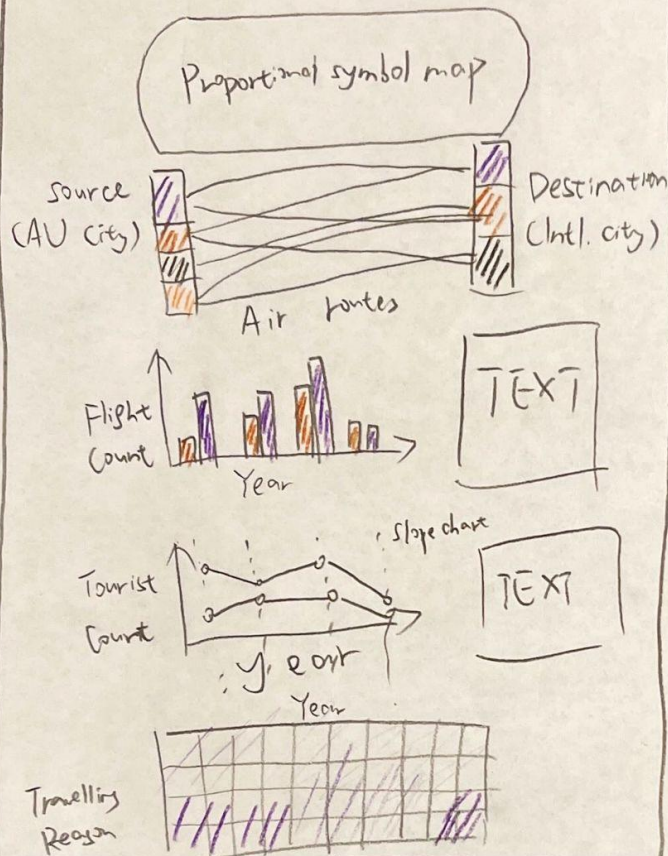 Proportional symbol map
Source
(AU City)
Destination
(Intl. city)
Air routes
Flight
Count
Year
TEXT
Slope chart
Tourist
Count
Year
TEXT
Year
Travelling
Reason